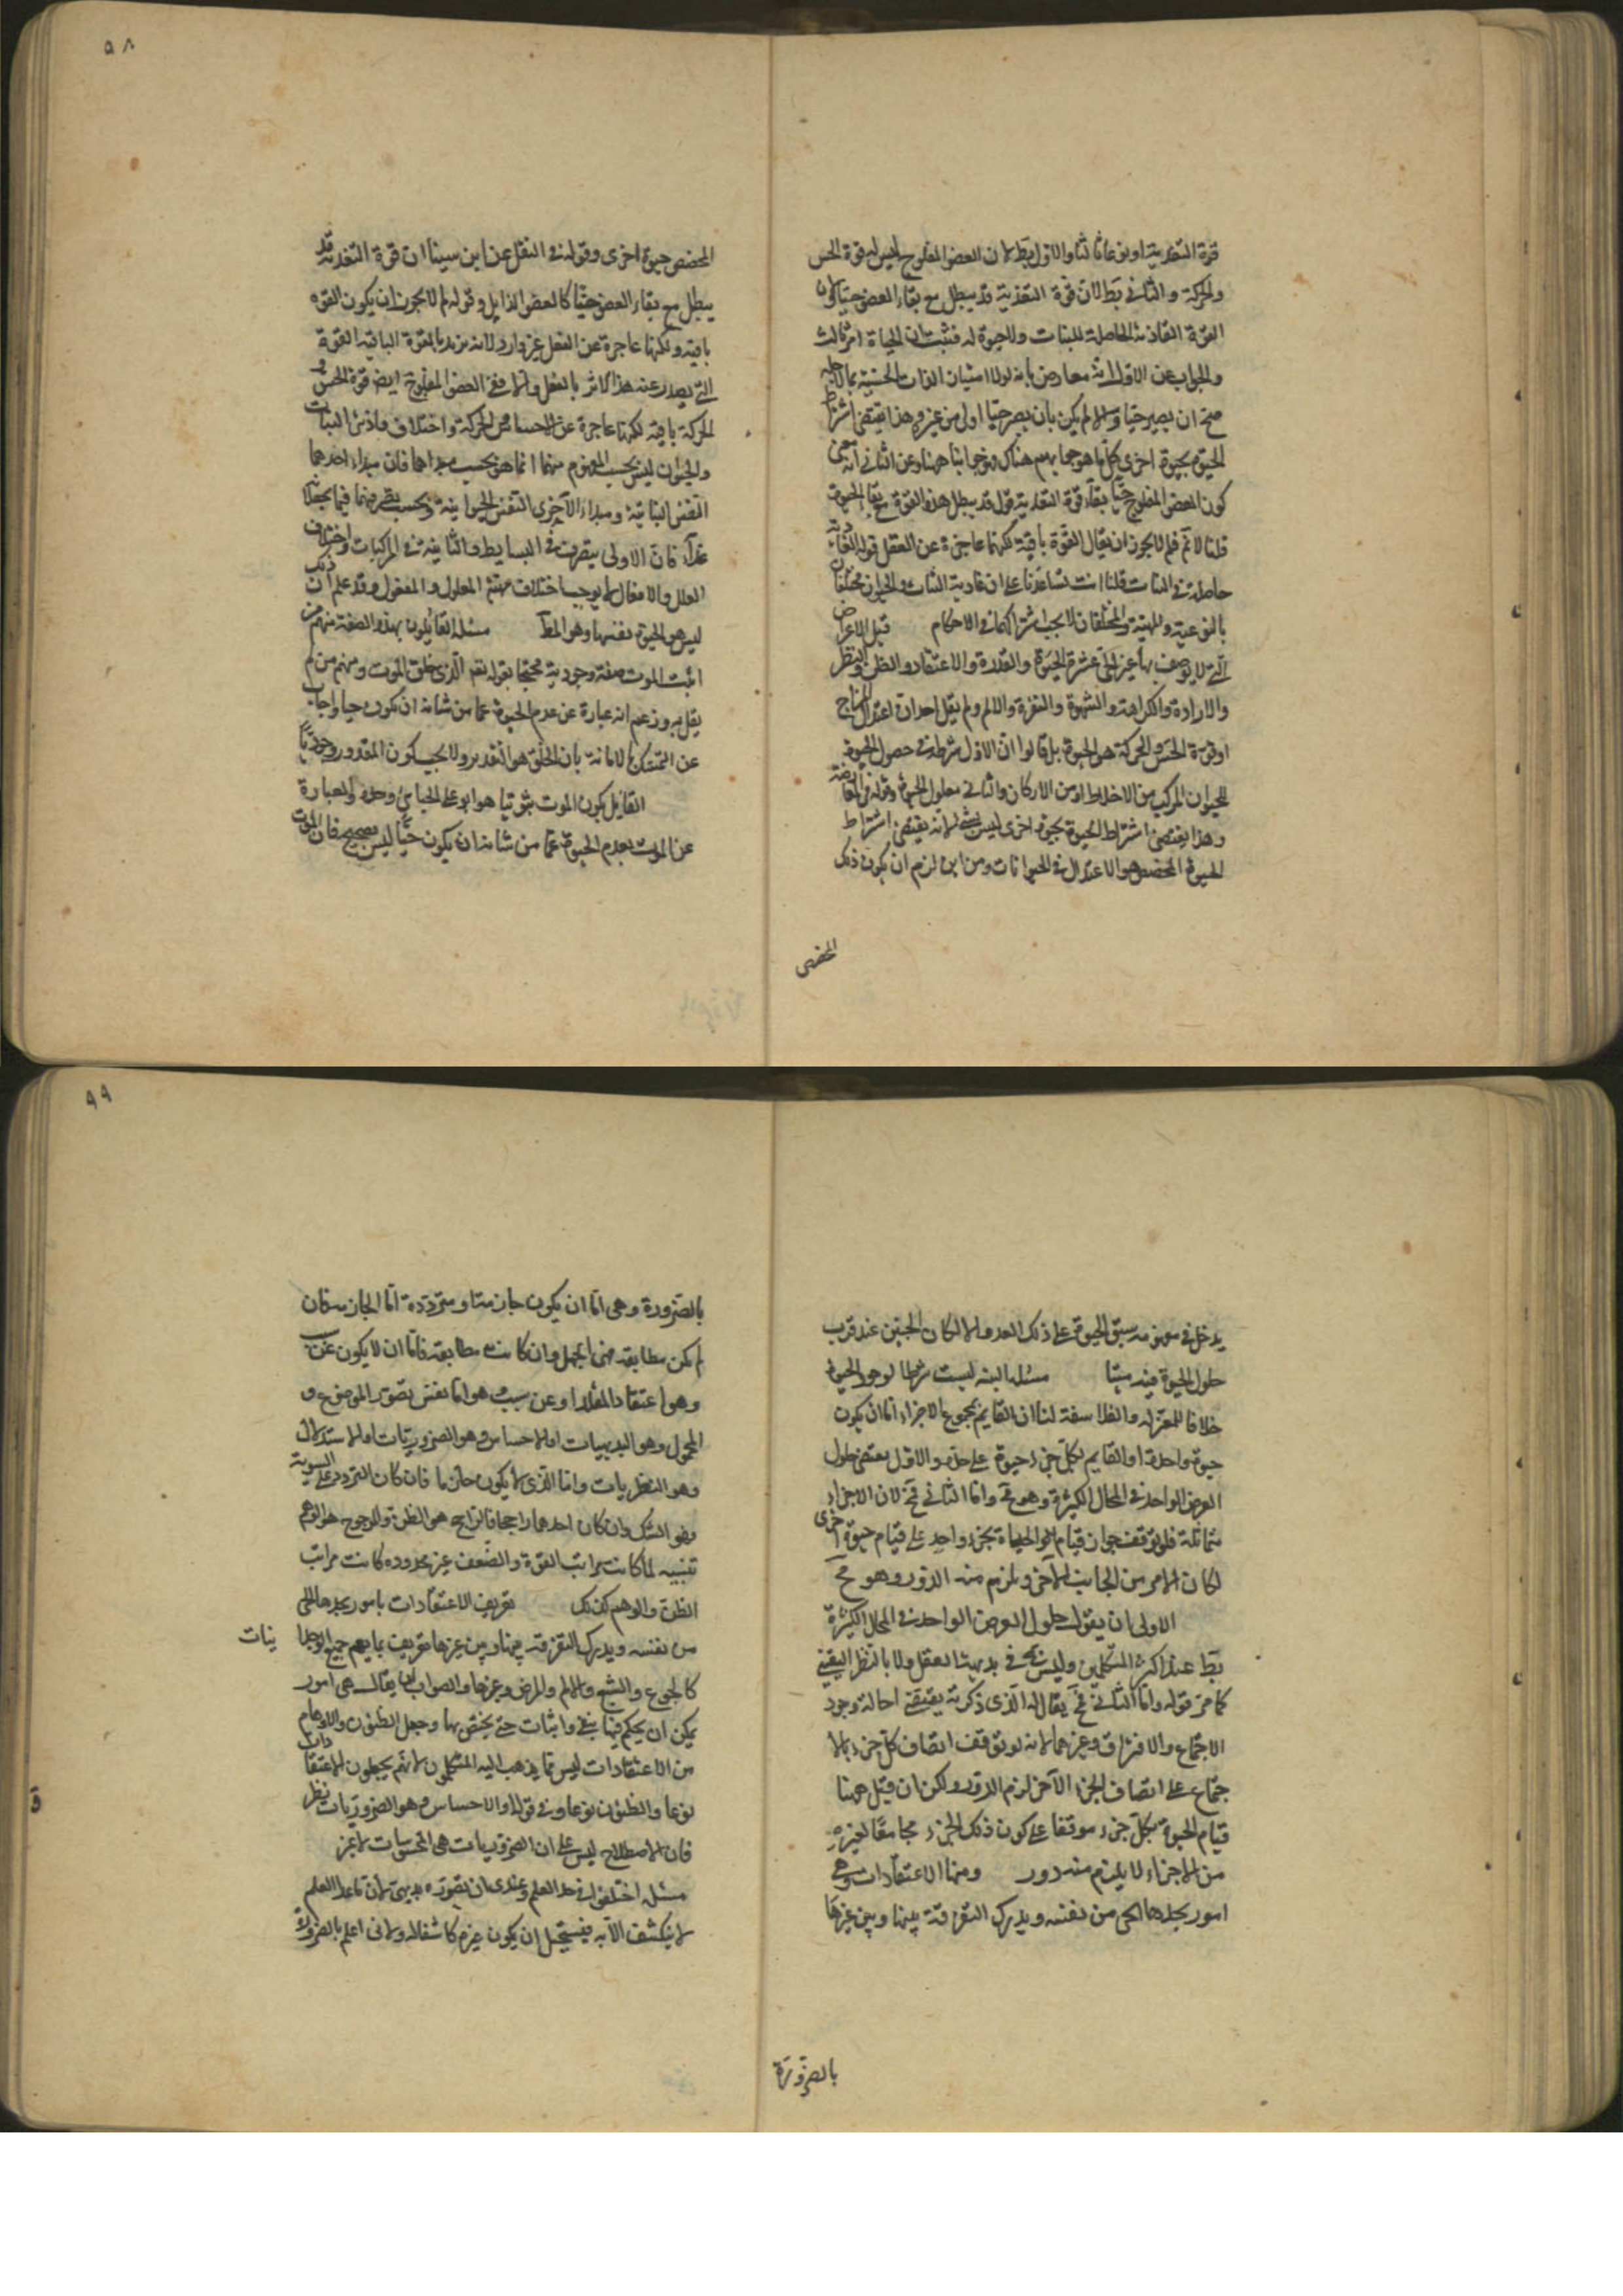 ٥٨
قوة التغذية او نوعا ثالثا والاول بط لان العضو المفلوج ليس له قوة الحس
والحركة والثاني بط لان قوة التغذية قد يبطل مع بقاء العضو حيا ولان
القوة الغاذية الحاصلة للنبات ولا حيوة له فثبت ان الحياة امر ثالث
والجواب عن الاول انه معارض بانه لولا امتياز الذات الحسية بما لاجله
صح ان يصير حيا والا لم يكن بان يصير حيا اولى من غيره وهذا يقتضى اشتراط
الحيوة بحيوة اخرى فكلما هو جوابهم هناك فهو جوابنا ههنا وعن الثاني ان معنى
كون العضو المفلوج حيا بقاء قوة التغذية قوله قد يبطل هذه القوة مع بقاء الحيوة
قلنا لا نم فلم لا يجوز ان يقال القوة باقية لكنها عاجزة عن الفعل قوله الغاذية
حاصلة في النبات قلنا انت تساعدنا على ان غاذية النبات والحيوان مختلفان
بالنوعية والمهية والمختلفان لا يجب اشتراكهما في الاحكام قيل الاعراض
التي لا يوصف بها غير الحى عشرة الحيوة والقدرة والاعتقاد والظن والنظر
والارادة والكراهة والشهوة والنفرة والالم ولم يقل احد ان اعتدال المزاج
او قوة الحس والحركة هو الحيوة بل قالوا ان الاول شرط في حصول الحيوة
للحيوان المركب من الاخلاط او من الاركان والثاني معلول الحيوة وقوله في المعارضة
وهذا يقتضى اشتراط الحيوة بحيوة اخرى ليس بشئ لانه يقتضى اشتراط
الحيوة المخصص هو الاعتدال في الحيوانات ومن اين لزم ان يكون ذلك
المخصص
المخصص حيوة اخرى وقوله في النقل عن ابن سينا ان قوة التغذية قد
يبطل مع بقاء العضو حيا كالعضو الذابل وقوله لم لا يجوز ان يكون القوة
باقية ولكنها عاجزة عن الفعل غير وارد لانه يريد بالقوة الباقية القوة
التي يصدر عنه هذا الاثر بالفعل والا ففي العضو المفلوج ايض قوة الحس و
الحركة باقية لكنها عاجزة عن الاحساس والحركة واختلاف غاذيتى النبات
والحيوان ليس بحسب المفهوم منهما انما هو بحسب مبدأهما فان مبداء احدهما
النفس النباتية ومبداء الآخرى النفس الحيوانية وبحسب تصرفهما فيما يجعلانه
غذاء فان الاولى يتصرف في البسايط والثانية في المركبات واختلاف
العلل والافعال لا يوجب اختلاف مهية المعلول والمفعول وقد علم ان ذلك
ليس هو الحيوة نفسها وهو المط مسئلة القائلون بهذه الصفة منهم من
اثبت الموت صفة وجودية محتجا بقوله تعم الذى خلق الموت ومنهم من لم
يقل به وزعم انه عبارة عن عدم الحيوة عما من شانه ان يكون حيا واجاب
عن التمسك بالآية بان الخلق هو التقدير ولا يجب كون المقدور وجوديا
القايل بكون الموت ثبوتيا هو ابو على الجبائى وحده والعبارة
عن الموت بعدم الحيوة عما من شانه ان يكون حيا ليس بصحيح فان الموت
٩٩
يدخل في مفهومه سبق الحيوة على ذلك العدم والا لكان الجنين عند قرب
حلول الحيوة فيه ميتا مسئلة البنية ليست شرطا لوجود الحيوة
خلافا للمعتزلة والفلاسفة لنا ان القايم بمجموع الاجزاء اما ان يكون
حيوة واحدة او القايم بكل جزء حيوة على حدة والاول يقتضى حلول
العرض الواحد في المحال الكثيرة وهو مح واما الثاني مح لان الاجزاء
متماثلة فلو توقف جواز قيام الحياة بجزء واحد على قيام حيوة اخرى
لكان الامر من الجانب الآخر ويلزم منه الدور وهو مح
الاولى ان يقول حلول العرض الواحد في المحال الكثيرة
بط عند اكثر المتكلمين وليس مح في بديهة العقل ولا بالنظر اليقيني
كما مر قوله واما الثاني مح يقال له الذى ذكرته يقتضى احالة وجود
الاجتماع والافتراق وغيرهما لانه لو توقف اتصاف كل جزء بالا
جتماع على اتصاف الجزء الآخر لزم الدور ولكن ان قيل ههنا
قيام الحيوة بكل جزء موقفا على كون ذلك الجزء مجامعا لغيره
من الاجزاء لا يلزم منه دور ومنها الاعتقادات وهى
امور يجدها الحى من نفسه ويدرك التفرقة بينها وبين غيرها
بالضرورة
بالضرورة وهى اما ان يكون جازمة او مترددة اما الجازمة فان
لم يكن مطابقة فهى الجهل وان كانت مطابقة فاما ان لا يكون عن سبب
وهو اعتقاد المقلد او عن سبب وهو اما نفس تصور الموضوع و
المحمول وهو البديهيات او الاحساس وهو الضروريات او الاستدلال
وهو النظريات واما الذى لا يكون جازما فان كان التردد على السوية
فهو الشك وان كان احدهما راجحا فالراجح هو الظن والمرجوح هو الوهم
تنبيه لما كانت مراتب القوة والضعف غير محدودة كانت مراتب
الظن والوهم كذلك تعريف الاعتقادات بامور يجدها الحى
من نفسه ويدرك التفرقة بينها وبين غيرها تعريف بما يعم جميع الوجدا نيات
كالجوع والشبع والالم والمرض وغيرها والصواب ان يقال هى امور
يمكن ان يحكم فيها بنفى واثبات حتى يختص بها وجعل الظنون والاوهام
من الاعتقادات ليس مما يذهب اليه المتكلمون لانهم يجعلون الاعتقادات
نوعا والظنون نوعا وفي قوله او الاحساس وهو الضروريات نظر
فان الاصطلاح ليس على ان الضروريات هى المحسوسات لا غير
مسئلة اختلفوا في حد العلم وعندى ان تصوره بديهى لان ما عدا العلم
لا ينكشف الا به فيستحيل ان يكون غيره كاشفا له ولانى اعلم بالضرورة